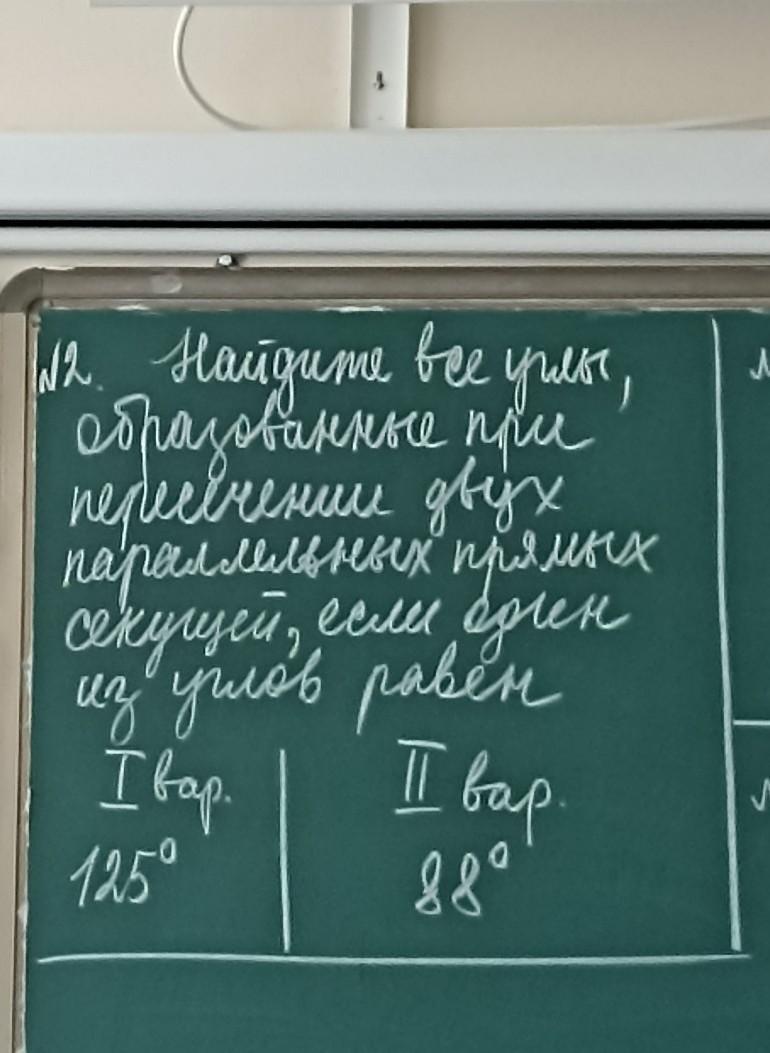 №2. Найдите все углы,
образованные при
пересечении двух
параллельных прямых
секущей, если один
из углов равен
I вар.
125°
II вар.
88°